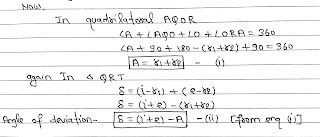 Now,
In quadrilateral AQOR
∠A + ∠AQO + ∠O + ∠ORA = 360
∠A + 90 + 180 - (r1+r2) + 90 = 360
A = r1+r2 - (i)
again In Δ QRT
δ = (i-r1) + (e-r2)
δ = (i+e) - (r1+r2)
Angle of deviation- δ = (i+e) - A - (ii) [from eqn (i)]